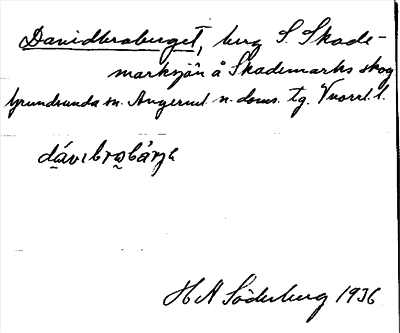 Davidbroberget, berg S. Skade-
marksjön å Skademarks skog
Grundsunda sn. Ångerml. n. doms. tg. Vnorrl. l.
dávıbrobárjə
H A Söderberg 1936